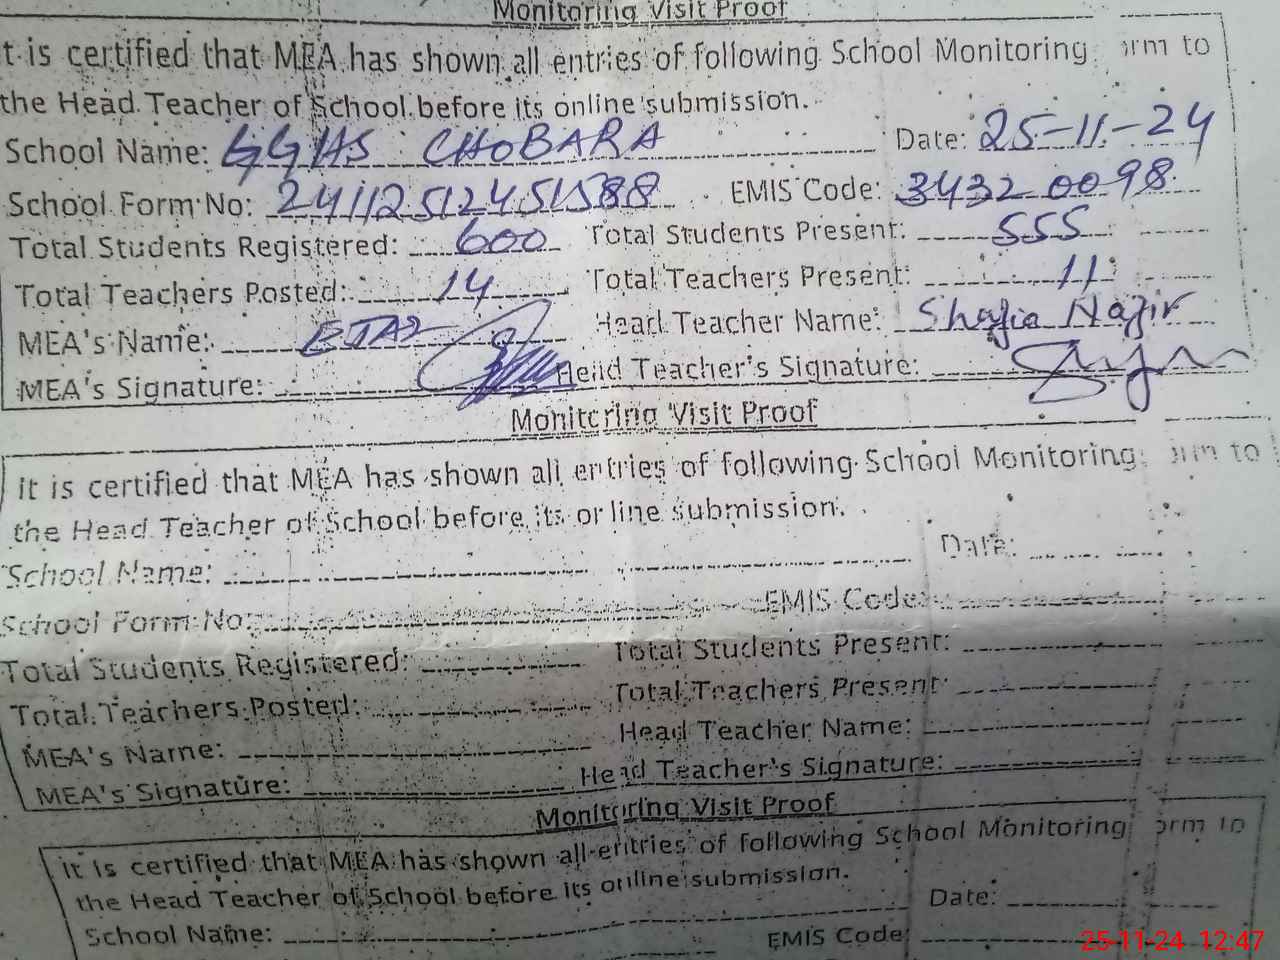 Monitoring Visit Proof
t is certified that MEA has shown all entries of following School Monitoring orm to
the Head Teacher of School before its online submission.
School Name: GGHS CHOBARA Date: 25-11-24
School Form No: 241125124551588 EMIS Code: 34320098
Total Students Registered: 600 Total Students Present: 555
Total Teachers Posted: 14 Total Teachers Present: 11
MEA's Name: EJAZ Head Teacher Name: Shazia Nazir
MEA's Signature: Head Teacher's Signature:
Monitoring Visit Proof
it is certified that MEA has shown all entries of following School Monitoring orm to
the Head Teacher of School before its online submission.
School Name: Date:
School Form No: EMIS Code:
Total Students Registered: Total Students Present:
Total Teachers Posted: Total Teachers Present:
MEA's Name: Head Teacher Name:
MEA's Signature: Head Teacher's Signature:
Monitoring Visit Proof
it is certified that MEA has shown all entries of following School Monitoring orm to
the Head Teacher of School before its online submission.
Date:
School Name:
EMIS Code:
25-11-24 12:47